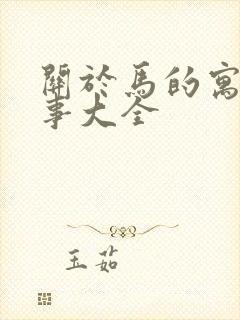 關於馬的寓
事大全
玉茹